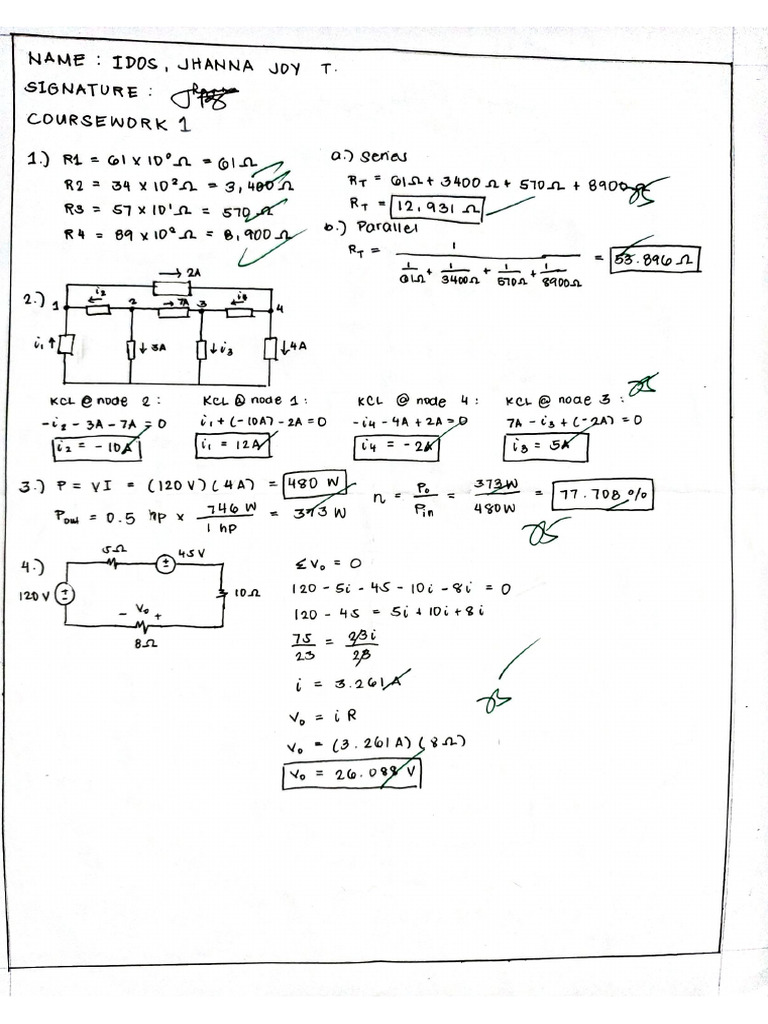 NAME : IDOS, JHANNA JOY T.
SIGNATURE :
COURSEWORK 1
1.) R1 = 61 x 10⁰ Ω = 61 Ω
R2 = 34 x 10² Ω = 3,400 Ω
R3 = 57 x 10¹ Ω = 570 Ω
R4 = 89 x 10² Ω = 8,900 Ω
a.) Series
RT = 61Ω + 3400 Ω + 570 Ω + 8900
RT = 12,931 Ω
b.) Parallel
RT = 1 / (1/61Ω + 1/3400Ω + 1/570Ω + 1/8900Ω) = 53.896 Ω
2.)
→ 2A
1 i2 2 → 7A 3 i4 4
i1 ↑ ↓ 3A ↓ i3 ↓ 4A
KCL @ node 2 :
-i2 - 3A - 7A = 0
i2 = -10A
KCL @ node 1 :
i1 + (-10A) - 2A = 0
i1 = 12A
KCL @ node 4 :
-i4 - 4A + 2A = 0
i4 = -2A
KCL @ node 3 :
7A - i3 + (-2A) = 0
i3 = 5A
3.) P = VI = (120 V)(4A) = 480 W
Pout = 0.5 hp x 746 W / 1 hp = 373 W
n = Po / Pin = 373W / 480W = 77.708 %
4.)
5Ω 45V
120 V 10Ω
- Vo +
8Ω
ΣVo = 0
120 - 5i - 45 - 10i - 8i = 0
120 - 45 = 5i + 10i + 8i
75 / 23 = 23i / 23
i = 3.261A
Vo = iR
Vo = (3.261A)(8Ω)
Vo = 26.088 V